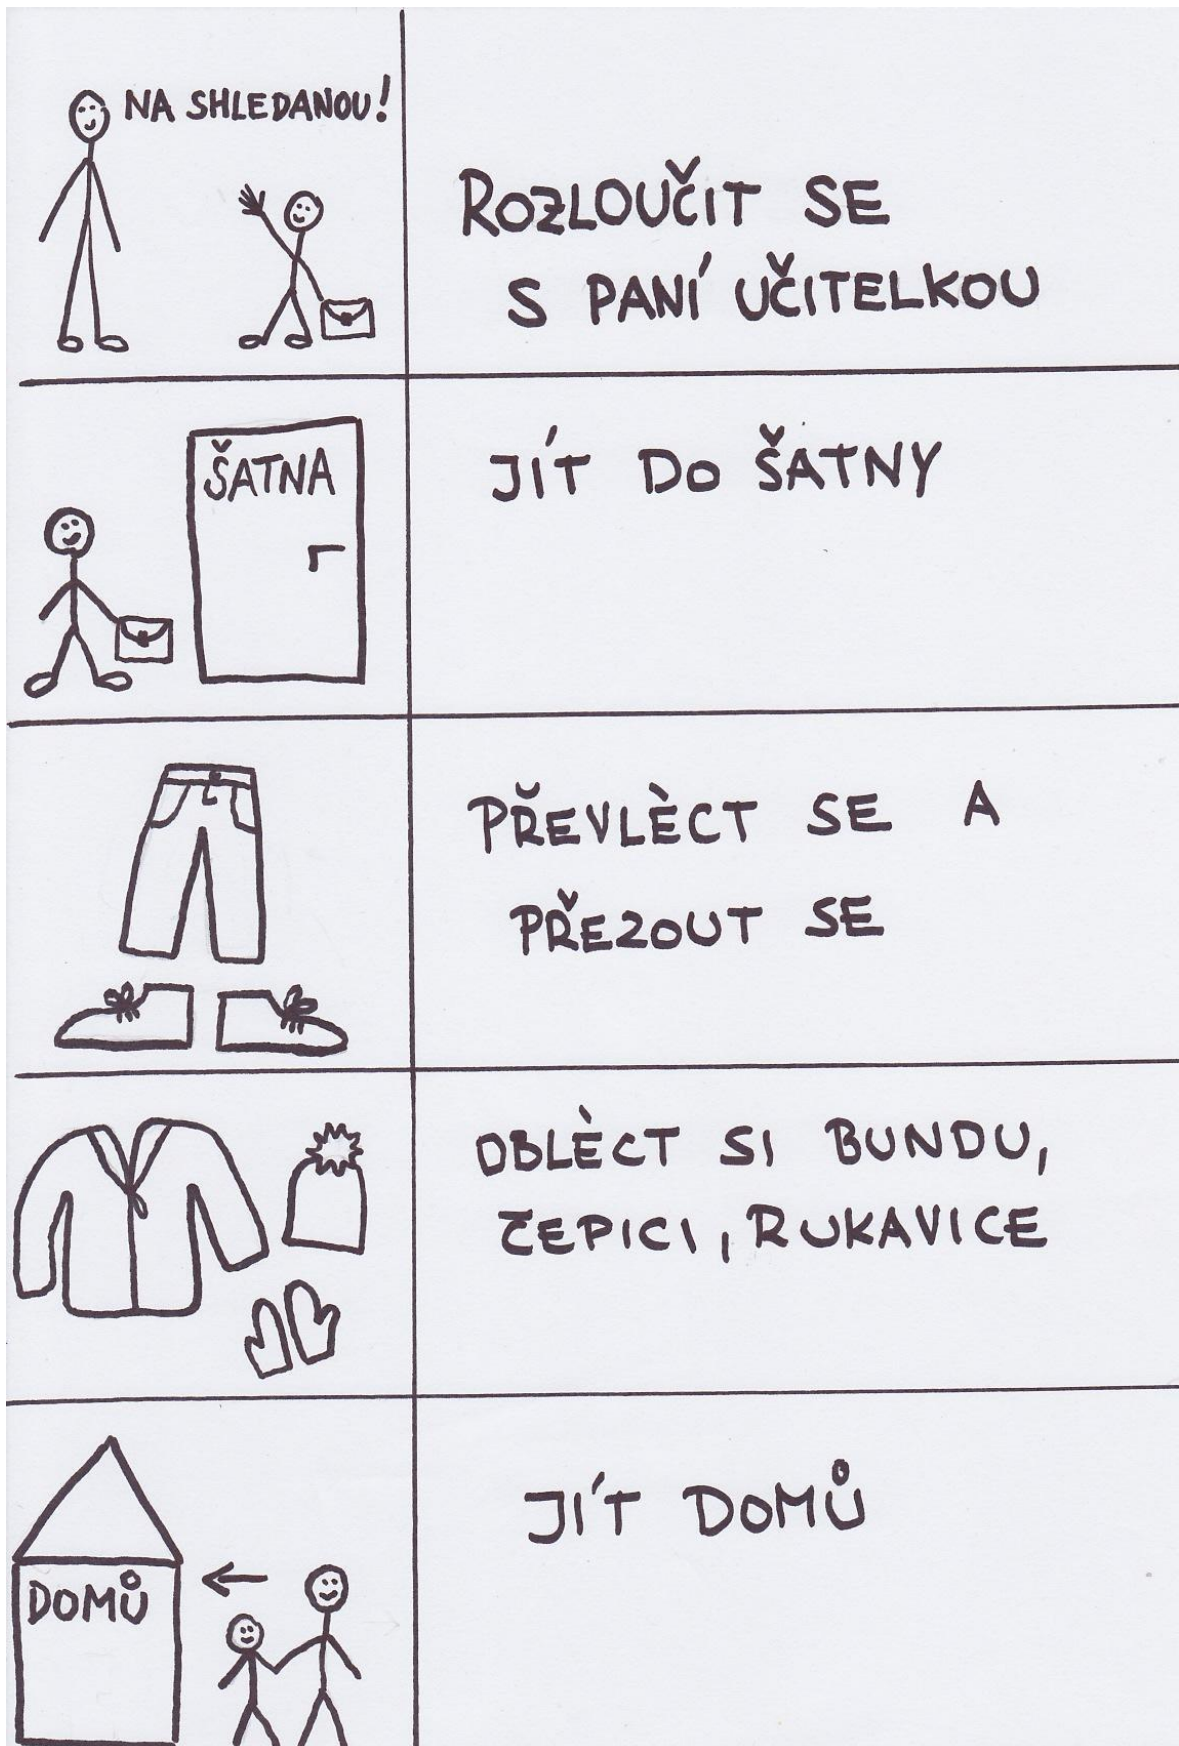 NA SHLEDANOU!
ROZLOUČIT SE
S PANÍ UČITELKOU
ŠATNA
JÍT DO ŠATNY
PŘEVLÈCT SE A
PŘEZOUT SE
OBLÈCT SI BUNDU,
ČEPICI, RUKAVICE
JÍT DOMŮ
DOMŮ